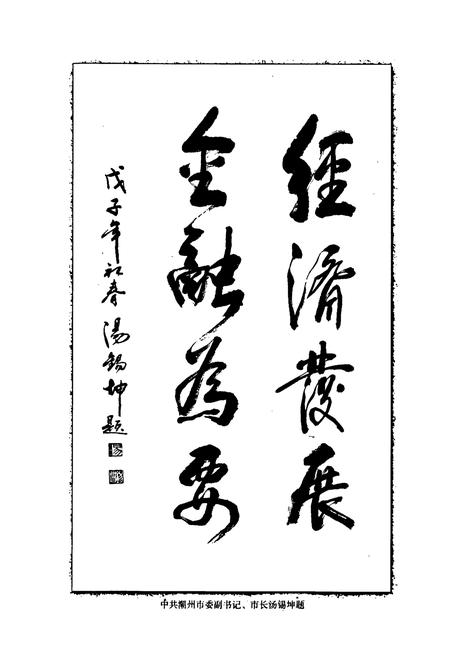 經濟發展
金融為要
戊子年初春 湯錫坤題
中共潮州市委副书记、市长汤锡坤题